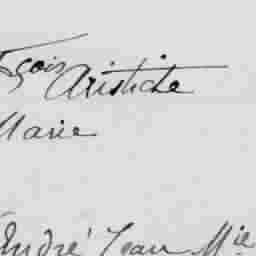 Fçois Aristide
Marie
André Jean Mie